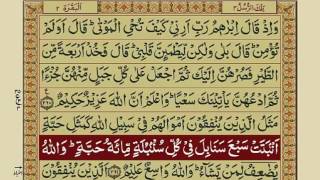 تلك الرسل ٣
البقرة ٢
وَاِذْ قَالَ اِبْرٰهٖمُ رَبِّ اَرِنِیْ كَیْفَ تُحْیِ الْمَوْتٰی ؕ قَالَ اَوَلَمْ
تُؤْمِنْ ؕ قَالَ بَلٰی وَلٰكِنْ لِّیَطْمَىِٕنَّ قَلْبِیْ ؕ قَالَ فَخُذْ اَرْبَعَةً مِّنَ
الطَّیْرِ فَصُرْهُنَّ اِلَیْكَ ثُمَّ اجْعَلْ عَلٰی كُلِّ جَبَلٍ مِّنْهُنَّ جُزْءًا
ثُمَّ ادْعُهُنَّ یَاْتِیْنَكَ سَعْیًا ؕ وَاعْلَمْ اَنَّ اللّٰهَ عَزِیْزٌ حَكِیْمٌ ۟
مَثَلُ الَّذِیْنَ یُنْفِقُوْنَ اَمْوَالَهُمْ فِیْ سَبِیْلِ اللّٰهِ كَمَثَلِ حَبَّةٍ
اَنْۢبَتَتْ سَبْعَ سَنَابِلَ فِیْ كُلِّ سُنْۢبُلَةٍ مِّائَةُ حَبَّةٍ ؕ وَاللّٰهُ
یُضٰعِفُ لِمَنْ یَّشَآءُ ؕ وَاللّٰهُ وَاسِعٌ عَلِیْمٌ ۟ اَلَّذِیْنَ یُنْفِقُوْنَ